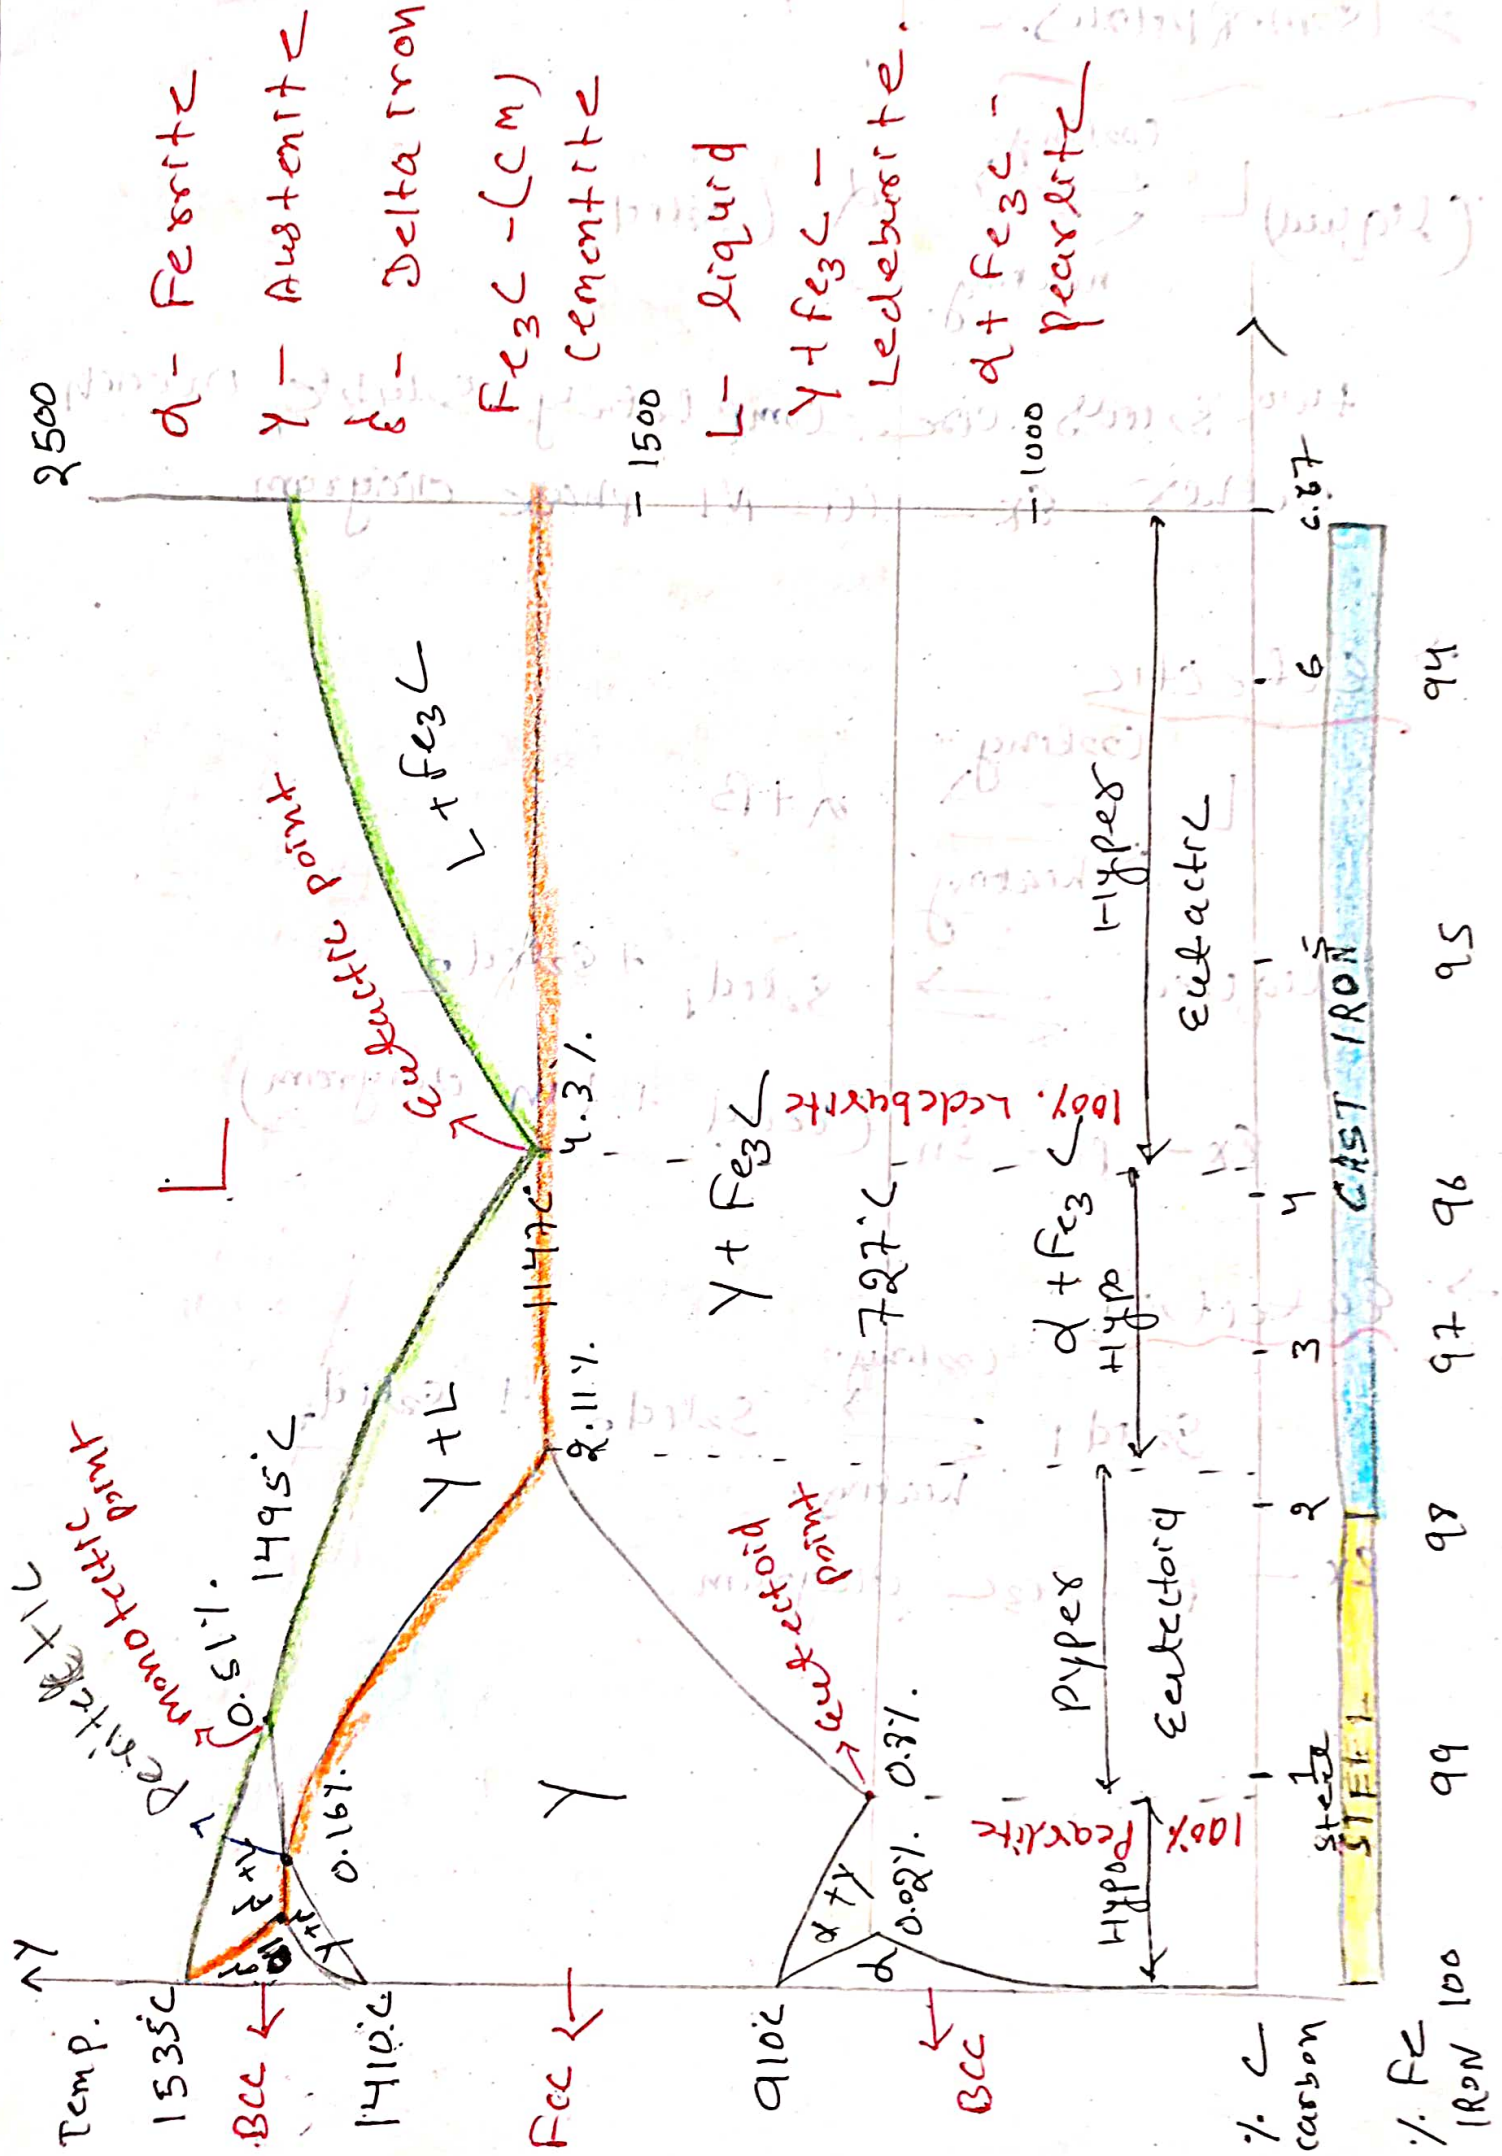 Temp.
Y
1535°C
BCC
1410°C
FCC
910°C
BCC
% C
carbon
% Fe
IRON
Peritectic
monotectic point
0.51%
1495°C
0.16%
γ+L
L
Eutectic point
L + Fe3C
2.11%
1147°C
4.3%
γ
γ + Fe3C
α+γ
α
0.02%
0.8%
Eutectoid
point
727°C
100% Ledeburite
α + Fe3C
100% Pearlite
Hypo
Pyper
Eeutectoid
Hypo
Hyper
Eutactic
1
2
3
4
5
6
6.67
STEEL
CAST IRON
100
99
98
97
96
95
94
2500
1500
1000
α - Ferrite
γ - Austenite
δ - Delta iron
Fe3C - (CM)
Cementite
L - liquid
γ + Fe3C -
Ledeburite.
α + Fe3C -
pearlite